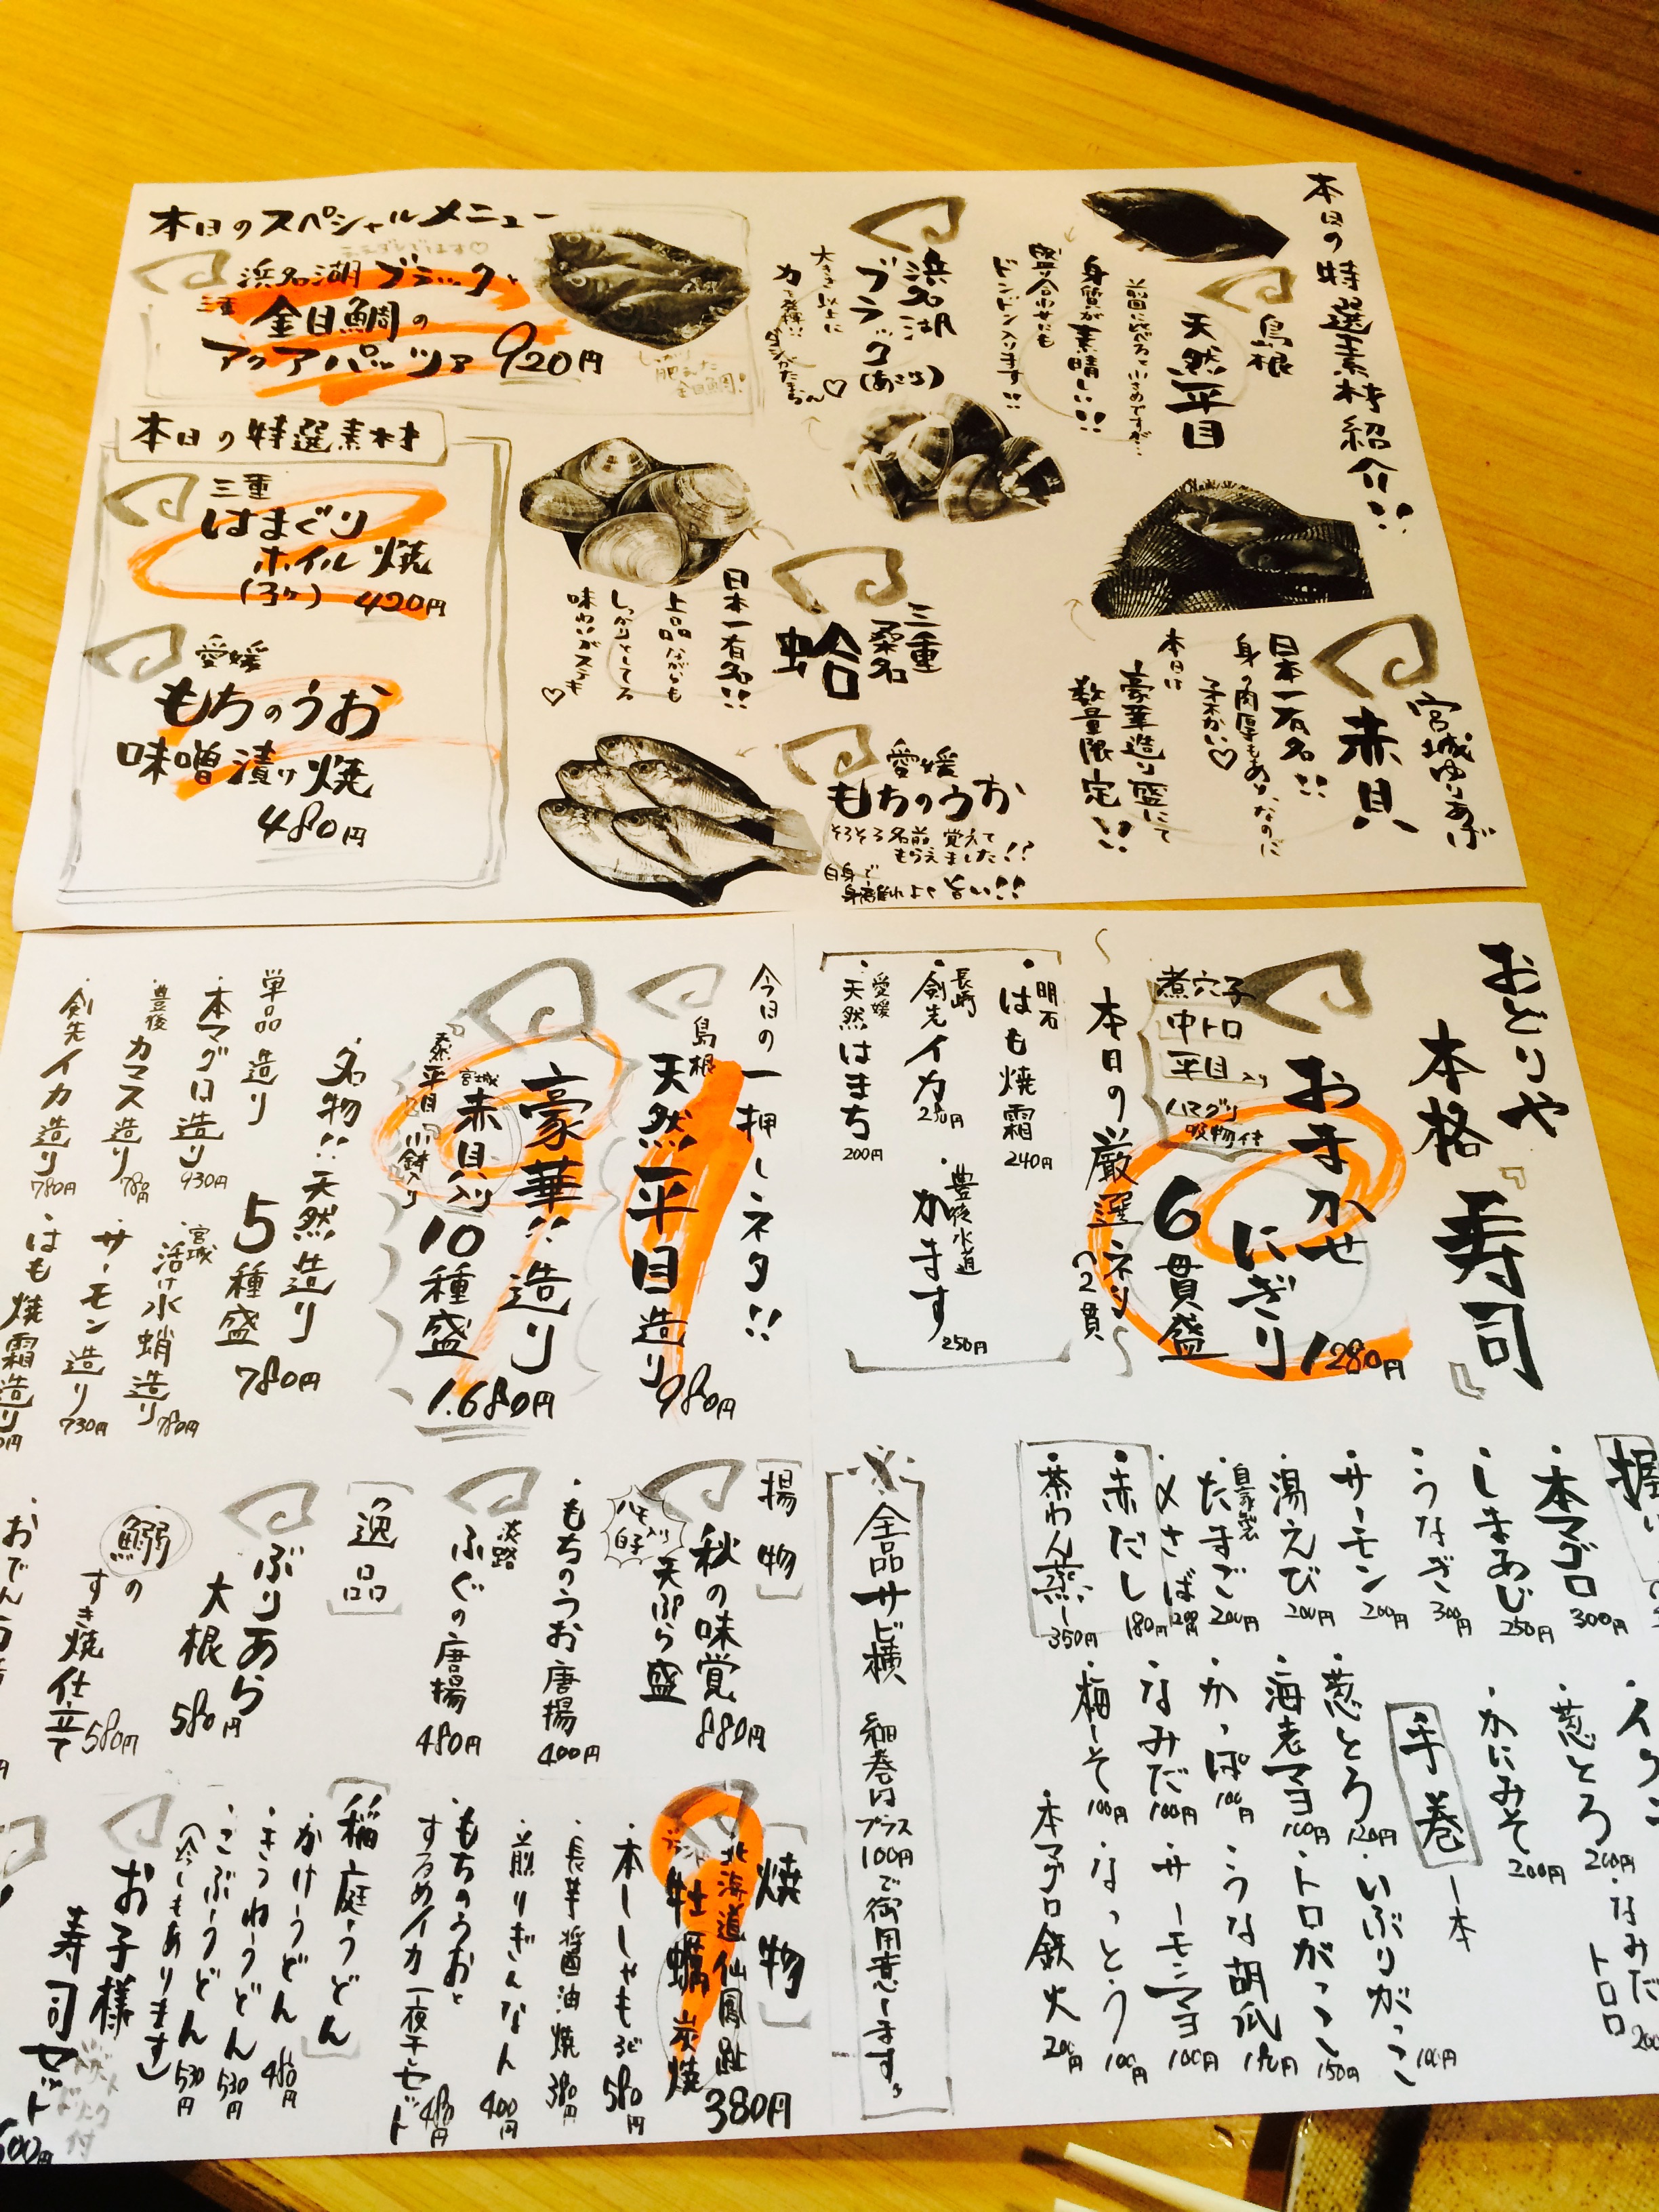 本日の特選素材紹介!!
島根
天然平目
身質が素晴しい!!
盛り合わせにも
ドンドン入ります!!
浜名湖
ブラック
(あさり)
大きさ以上に
宮城ゆりあげ
赤貝
日本一有名!!
身肉厚もありなのに
本日は
豪華造り盛にて
数量限定!!
三重
桑名
蛤
日本一有名!!
上品ながらも
しっかりとしてる
味わいがステキ♡
愛媛
もちのうお
そろそろ名前、覚えて
もらえました!?
白身で
身離れよく旨い!!
本日のスペシャルメニュー
浜名湖ブラックと
三重
金目鯛の
アクアパッツァ 920円
しっかり
肥えた
金目鯛!
本日の特選素材
三重
はまぐり
ホイル焼
(3ケ) 420円
愛媛
もちのうお
味噌漬け焼
480円
おどりや
本格『寿司』
おまかせ
にぎり
1280円
6貫盛
煮穴子
中トロ
平目入り
ハマグリ
吸物付き
〜本日の厳選ネタ
2貫〜
明石
・はも焼霜 240円
長崎
・剣先イカ 250円
愛媛
・天然はまち 200円
・豊後水道
かます 250円
握り
・本マグロ 300円
・しまあじ 250円
・うなぎ 300円
・サーモン 200円
・湯えび 200円
自家製
・たまご 200円
・〆さば 200円
・赤だし 180円
・茶わん蒸し 350円
・イクラ
・葱とろ 200円
・かにみそ 200円
・なみだ
トロロ
手巻 一本
・葱とろ 120円
・海老マヨ 100円
・かっぱ 100円
・なみだ 100円
・梅しそ 100円
・いぶりがっこ 100円
・トロがっこ 150円
・うな胡瓜
・サーモンマヨ 100円
・なっとう 100円
・本マグロ鉄火 200円
※全品サビ横 細巻はプラス100円で御用意します。
今日の一押しネタ!!
島根
天然平目造り 980円
豪華!!造り
宮城
赤貝入り
10種盛
1,680円
名物!!天然造り
5種盛 780円
単品造り
・本マグロ造り 930円
・豊後カマス造り 780円
・剣先イカ造り 780円
・宮城
活け水蛸造り 780円
・サーモン造り 730円
・はも焼霜造り
[揚物]
秋の味覚
天ぷら盛 880円
ハモ入り
白子
・もちのうお唐揚 400円
淡路
ふぐの唐揚 480円
[逸品]
ぶりあら
大根 580円
・鰯の
すき焼仕立て 580円
[焼物]
北海道仙鳳趾
牡蠣炭焼 380円
・本ししゃも 580円
・長芋醤油焼 380円
・煎りぎんなん 400円
・もちのうおと
するめイカ一夜干セット 480円
[稲庭うどん]
・かけうどん 480円
・きつねうどん 530円
・こぶうどん 530円
(冷しもあります)
お子様
寿司セット